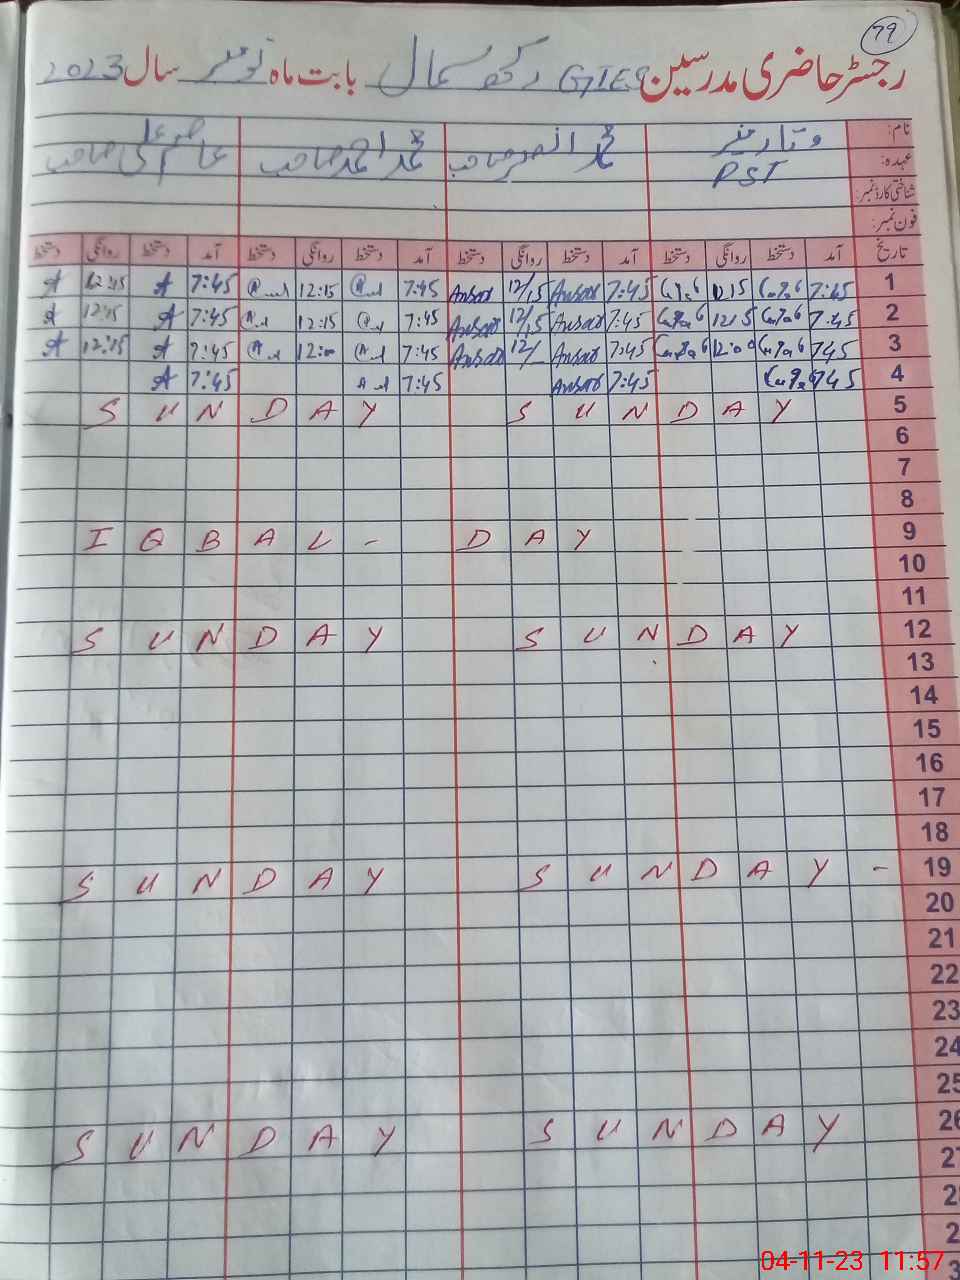 79
رجسٹر حاضری مدرسین GIES رکھ سمال بابت ماہ نومبر سال 2023
نام: وقار منیر محمد انصر صاحب محمد احمد صاحب
عہدہ: PST
شناختی کارڈ نمبر:
فون نمبر:
تاریخ آمد دستخط روانگی دستخط آمد دستخط روانگی دستخط آمد دستخط روانگی دستخط آمد دستخط روانگی دستخط
1 7:45 1215 7:45 Ansar 12/15 Ansar 7:45 12:15 7:45 A 12:15 A
2 7:45 1215 7:45 Ansar 12/15 Ansar 7:45 12:15 7:45 A 12:15 A
3 745 12:00 7:45 Ansar 12/ Ansar 7:45 12:00 7:45 A 12:15 A
4 745 7:45 Ansar 7:45 7:45 A
5 SUNDAY SUNDAY
6
7
8
9 IQBAL - DAY
10
11
12 SUNDAY SUNDAY
13
14
15
16
17
18
19 SUNDAY SUNDAY -
20
21
22
23
24
25
26 SUNDAY SUNDAY
27
28
04-11-23 11:57